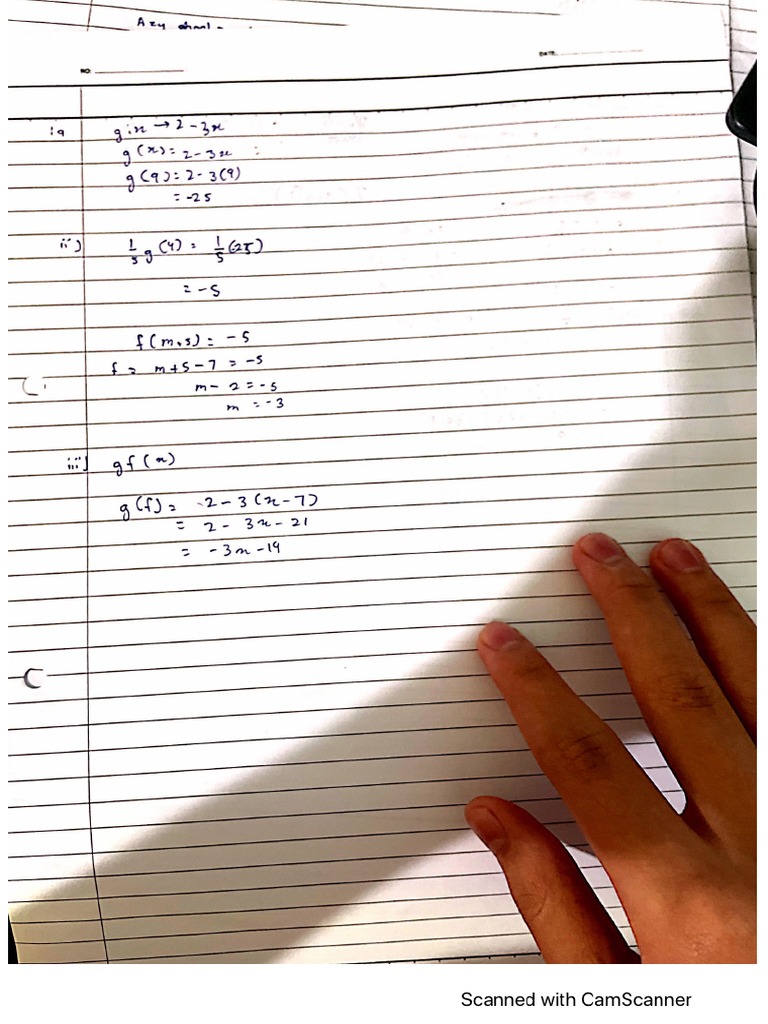 NO.
DATE.
g : x → 2 - 3x
g (x) = 2 - 3x
g (9) = 2 - 3(9)
= -25
ii) 1/5 g (9) = 1/5 (25)
= -5
f (m+5) = -5
f = m+5-7 = -5
m - 2 = -5
m = -3
iii) gf (x)
g (f) = 2 - 3 (x - 7)
= 2 - 3x - 21
= -3x - 19
Scanned with CamScanner